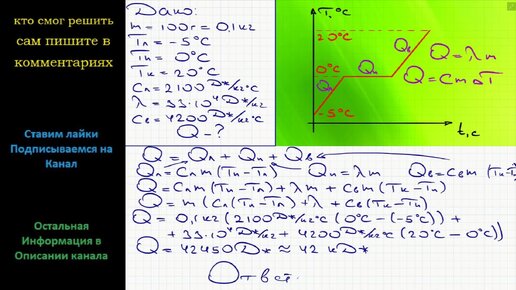 кто смог решить
сам пишите в
комментариях
Ставим лайки
Подписываемся на
Канал
Остальная
Информация в
Описании канала
Дано:
m = 100г = 0,1кг
Tл = -5°C
Tп = 0°C
Tк = 20°C
Cл = 2100 Дж/кг°C
λ = 33·10⁴ Дж/кг
Cв = 4200 Дж/кг°C
Q - ?
T, °C
20°C
0°C
-5°C
Qл
Qп
Qв
t, c
Q = λm
Q = Cm ΔT
Q = Qл + Qп + Qв
Qл = Cлm (Tп - Tл) Qп = λm Qв = Cвm (Tк - Tп)
Q = Cлm (Tп - Tл) + λm + Cвm (Tк - Tп)
Q = m (Cл (Tп - Tл) + λ + Cв (Tк - Tп)
Q = 0,1кг (2100 Дж/кг°C (0°C - (-5°C)) +
+ 33·10⁴ Дж/кг + 4200 Дж/кг°C (20°C - 0°C))
Q = 42450 Дж ≈ 42 кДж
Ответ.